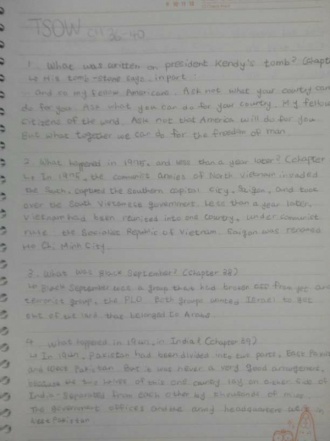 TSOW CH 36-40
1. What was written on president Kendy's tomb? (chapter
↳ His tomb-stone says, in part:
- and so my fellow Americans. Ask not what your country can
do for you. Ask what you can do for your country. My fellow
citizens of the world. Ask not the America will do for you
But what together we can do for the freedom of man.
2. What happened in 1975, and less than a year later? (chapter
↳ In 1975, the communist armies of North Vietnam invaded
the South, captured the southern capital city, Saigon, and took
over the South Vietnamese government. Less than a year later,
Vietnam had been reunited into one country, under communist
rule the Socialist Republic of Vietnam. Saigon was renamed
Ho Chi Minh City.
3. What was Black September? (chapter 38)
↳ Black September was a group that had broken off from
terrorist group, the PLO. Both groups wanted Israel to get
out of the land that belonged to Arabs.
4. What happened in in India? (chapter 39)
↳ In Pakistan had been divided into two parts, East
and West Pakistan. But it was never a very good arrangement,
because the two halves of this one country lay on either side of
India separated from each other by thousands of miles.
The government offices and the army headquarters
West Pakistan